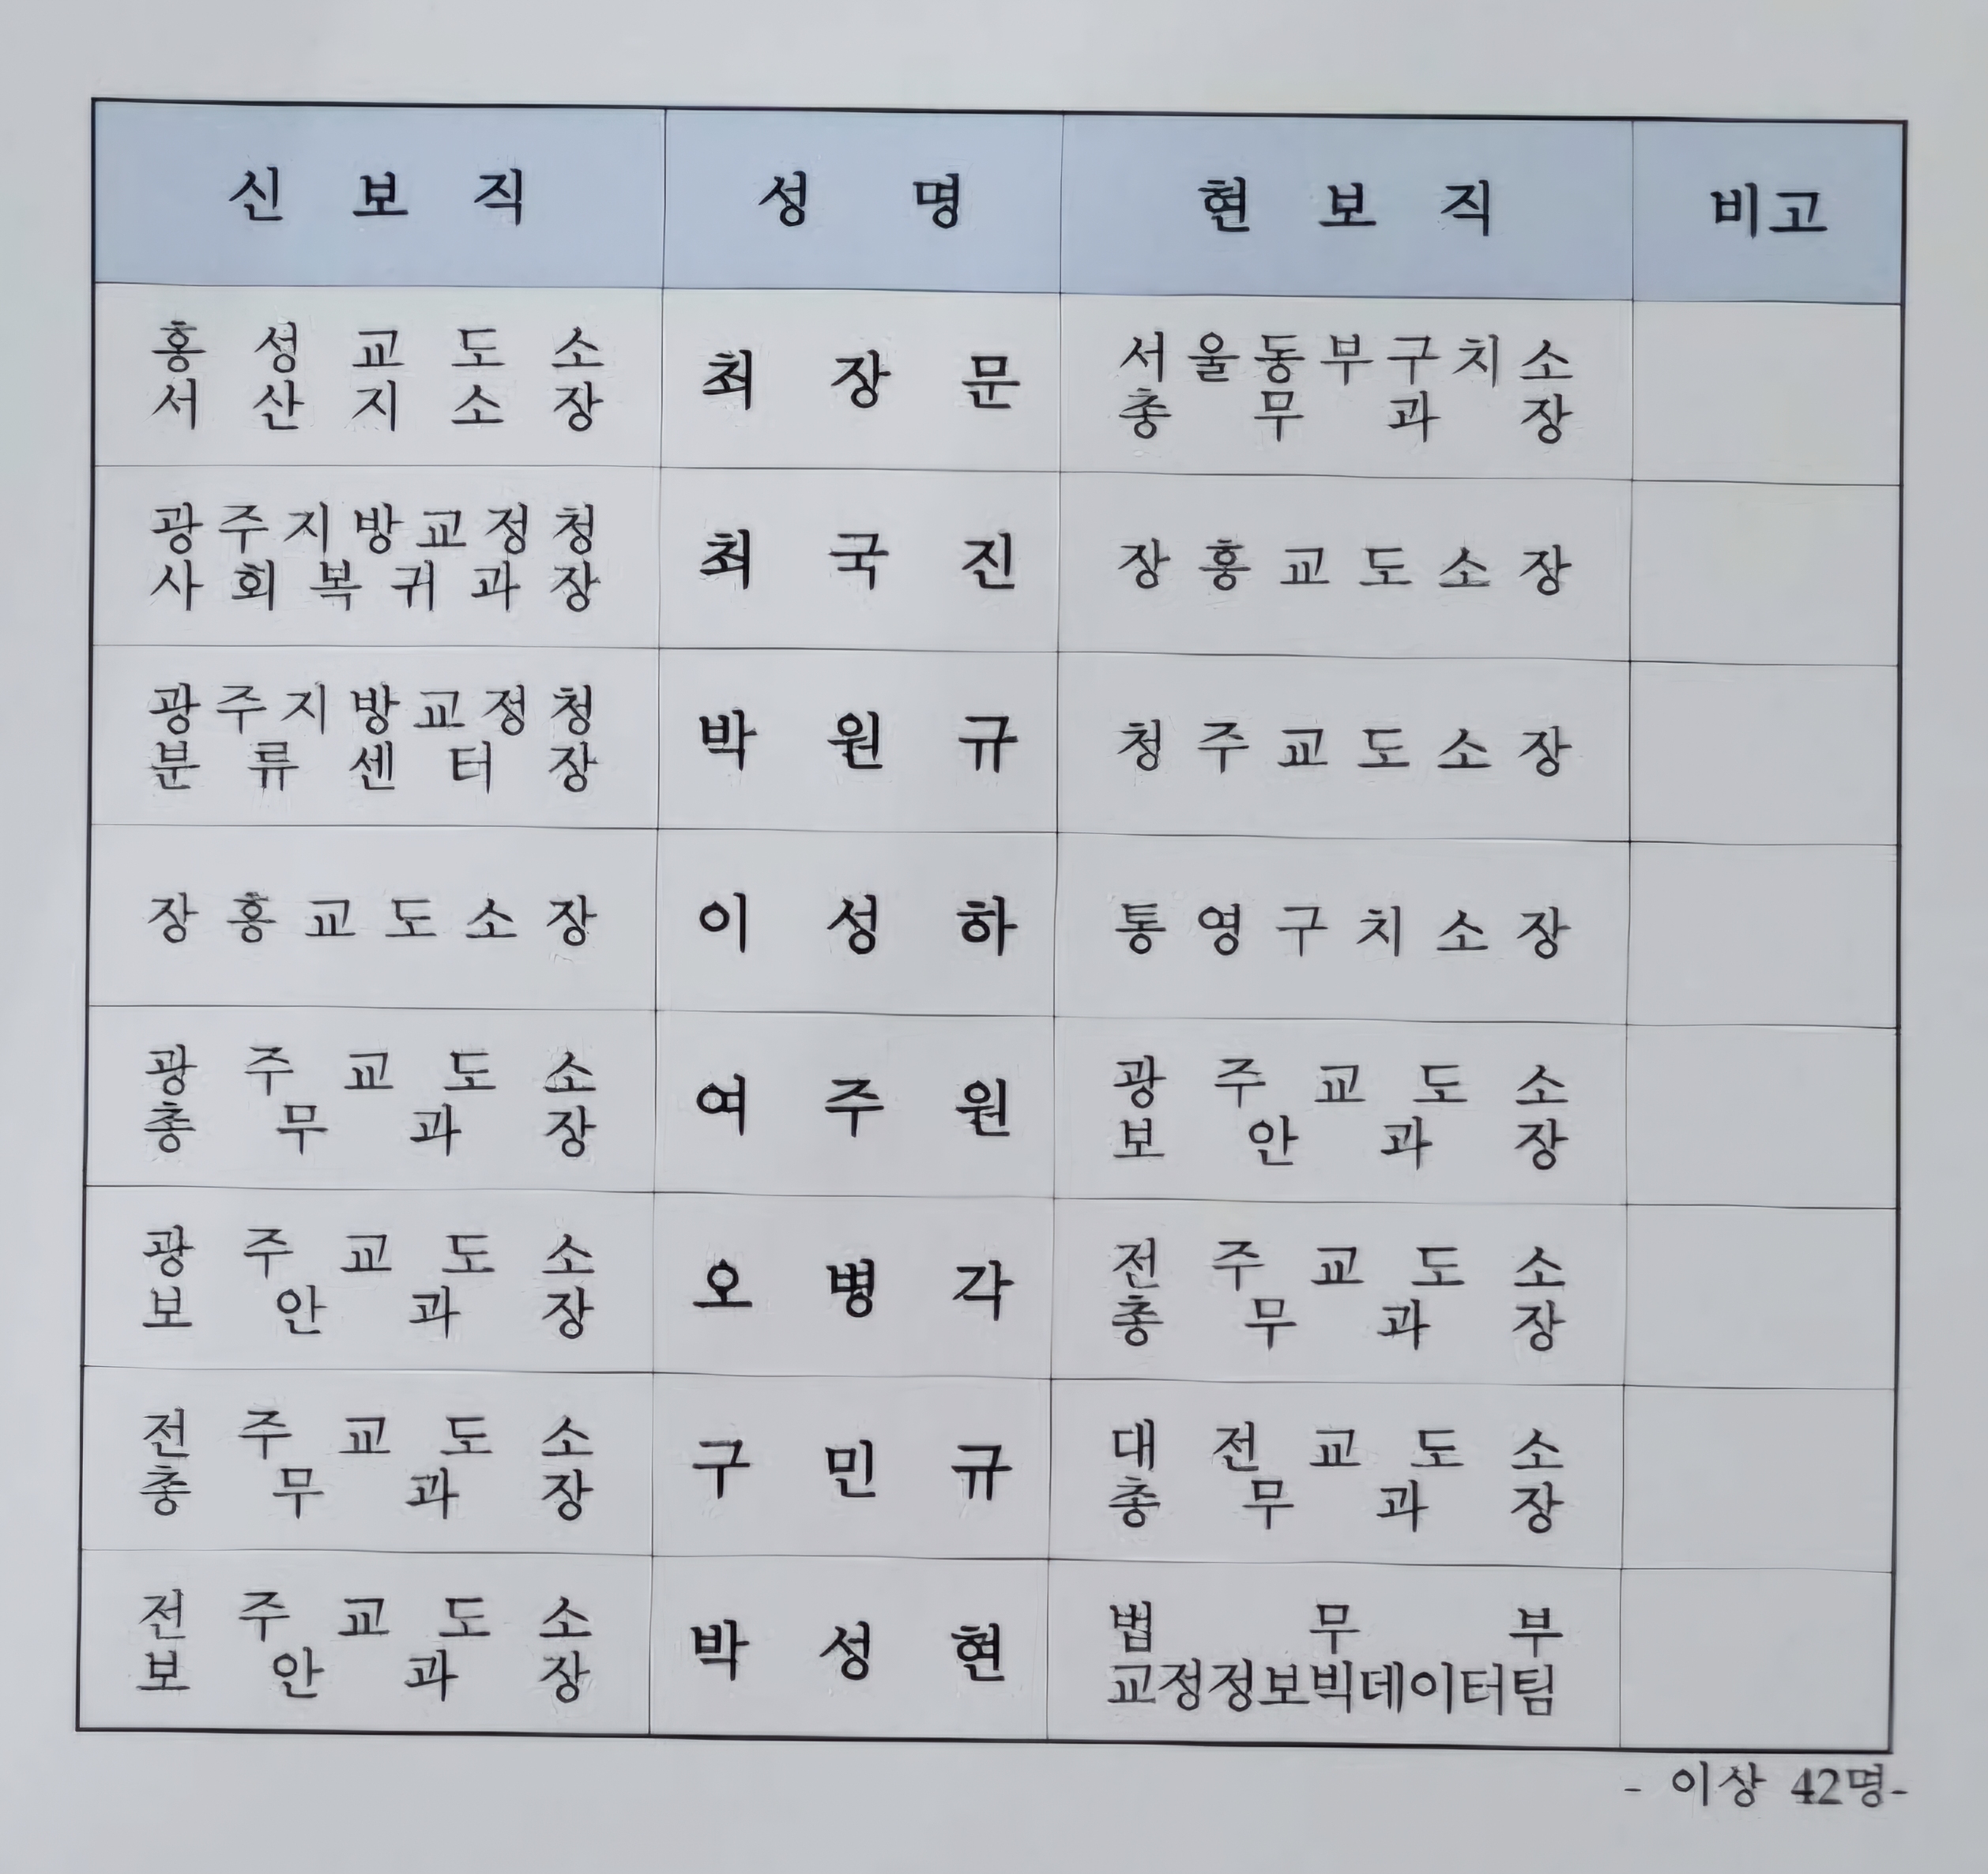 신 보 직 성 명 현 보 직 비고
홍 성 교 도 소
서 산 지 소 장
최 장 문
서울동부구치소
총 무 과 장
광주지방교정청
사회복귀과장
최 국 진
장흥교도소장
광주지방교정청
분 류 센 터 장
박 원 규
청주교도소장
장흥교도소장
이 성 하
통영구치소장
광 주 교 도 소
총 무 과 장
여 주 원
광 주 교 도 소
보 안 과 장
광 주 교 도 소
보 안 과 장
오 병 각
전 주 교 도 소
총 무 과 장
전 주 교 도 소
총 무 과 장
구 민 규
대 전 교 도 소
총 무 과 장
전 주 교 도 소
보 안 과 장
박 성 현
법 무 부
교정정보빅데이터팀
- 이상 42명-